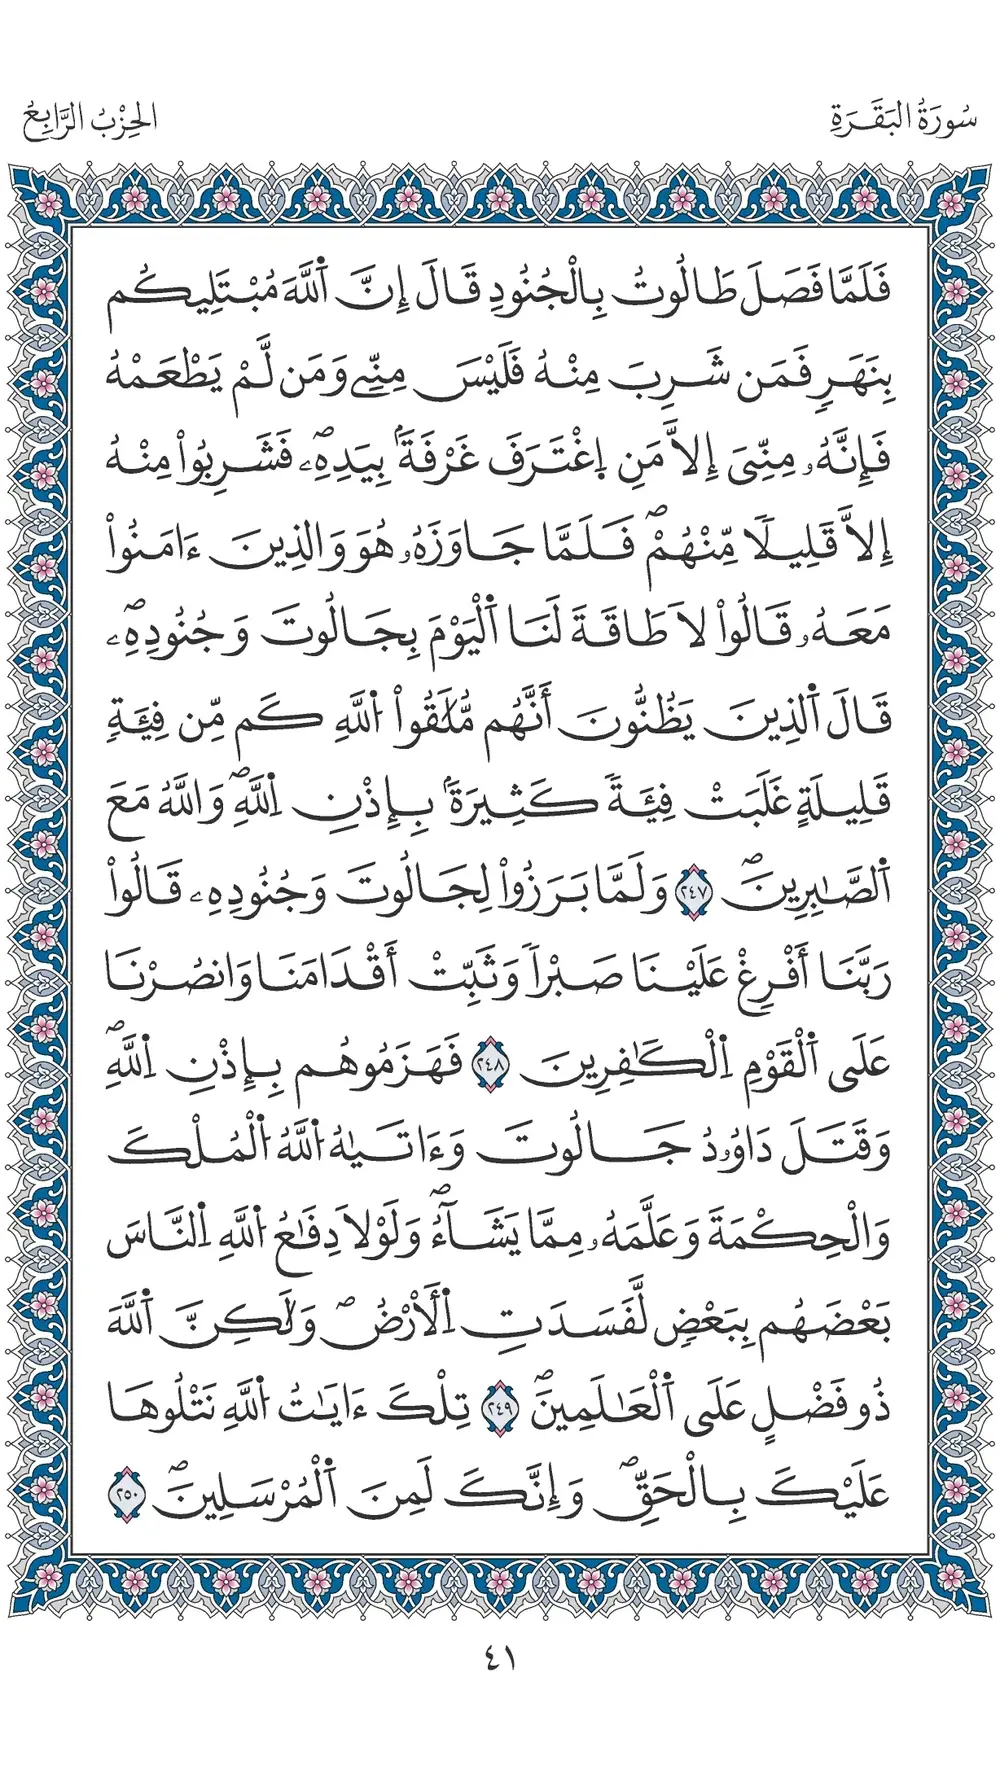 سُورَةُ البَقَرَةِ
الحِزْبُ الرَّابِعُ
فَلَمَّا فَصَلَ طَالُوتُ بِالْجُنُودِ قَالَ إِنَّ اَ۬للَّهَ مُبْتَلِيكُم
بِنَهَرٖ فَمَن شَرِبَ مِنْهُ فَلَيْسَ مِنِّے وَمَن لَّمْ يَطْعَمْهُ
فَإِنَّهُۥ مِنِّيَ إِلاَّ مَنِ اِ۪غْتَرَفَ غَرْفَةَۢ بِيَدِهِۦۖ فَشَرِبُواْ مِنْهُ
إِلاَّ قَلِيلاٗ مِّنْهُمْۖ فَلَمَّا جَاوَزَهُۥ هُوَ وَالذِينَ ءَامَنُواْ
مَعَهُۥ قَالُواْ لاَ طَاقَةَ لَنَا اَ۬لْيَوْمَ بِجَالُوتَ وَجُنُودِهِۦۖ
قَالَ اَ۬لذِينَ يَظُنُّونَ أَنَّهُم مُّلَٰقُواْ اُ۬للَّهِ كَم مِّن فِئَةٖ
قَلِيلَةٍ غَلَبَتْ فِئَةٗ كَثِيرَةَۢ بِإِذْنِ اِ۬للَّهِۖ وَاللَّهُ مَعَ
اَ۬لصَّٰبِرِينَۖ ٢٤٧ وَلَمَّا بَرَزُواْ لِجَالُوتَ وَجُنُودِهِۦ قَالُواْ
رَبَّنَا أَفْرِغْ عَلَيْنَا صَبْراٗ وَثَبِّتْ أَقْدَامَنَا وَانصُرْنَا
عَلَى اَ۬لْقَوْمِ اِ۬لْكَٰفِرِينَ ٢٤٨ فَهَزَمُوهُم بِإِذْنِ اِ۬للَّهِۖ
وَقَتَلَ دَاوُۥدُ جَالُوتَ وَءَاتَيٰهُ اُ۬للَّهُ اُ۬لْمُلْكَ
وَالْحِكْمَةَ وَعَلَّمَهُۥ مِمَّا يَشَآءُۖ وَلَوْلاَ دِفَٰعُ اُ۬للَّهِ اِ۬لنَّاسَ
بَعْضَهُم بِبَعْضٖ لَّفَسَدَتِ اِ۬لْأَرْضُۖ وَلَٰكِنَّ اَ۬للَّهَ
ذُو فَضْلٍ عَلَى اَ۬لْعَٰلَمِينَۖ ٢٤٩ تِلْكَ ءَايَٰتُ اُ۬للَّهِ نَتْلُوهَا
عَلَيْكَ بِالْحَقِّۖ وَإِنَّكَ لَمِنَ اَ۬لْمُرْسَلِينَۖ ٢٥٠
٤١